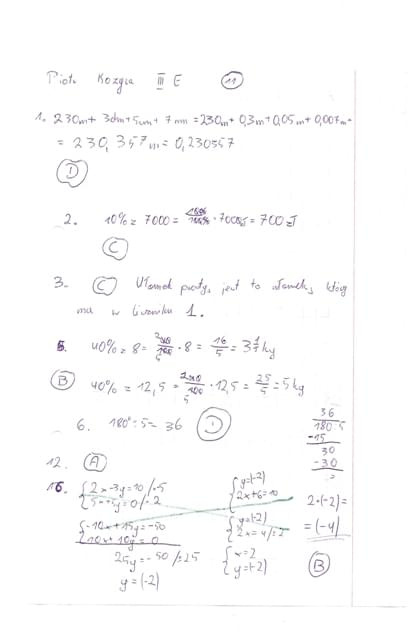 Piotr Kozyra III E 11
1. 230m + 3dm + 5cm + 7mm = 230m + 0,3m + 0,05m + 0,007m =
= 230,357m = 0,230357
D
2. 10% z 7000 = 7000 = 700 zł
C
3. C Ułamek prosty, jest to ułamek, który
ma w liczniku 1.
5. 40% z 8 = · 8 = 16/5 = 3 1/5 kg
B 40% z 12,5 = · 12,5 = 25/5 = 5 kg
6. 180° : 5 = 36 D
36
180:5
-15
30
-30
=
12. A
16. {2x-3y=10 /·5 {y=(-2)
{5x+5y=0 /·2 {2x+6=10
{-10x+15y=-50 {y=(-2)
{10x+10y=0 {2x=4 /:2
25y=-50 /:25 {x=2
y=(-2) {y=(-2)
2·(-2)=
=(-4)
B